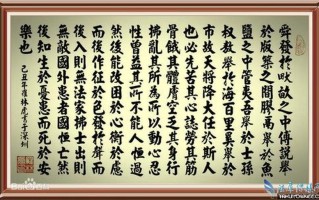 舜發於畎畝之中傅說舉
於版築之間膠鬲舉於魚
鹽之中管夷吾舉於士孫
叔敖舉於海百里奚舉於
市故天將降大任於斯人
也必先苦其心誌勞其筋
骨餓其體膚空乏其身行
拂亂其所為所以動心忍
性曾益其所不能人恒過
然後能改困於心衡於慮
而後作徵於色發於聲而
後入則無法家拂士出則
無敵國外患者國恒亡然
後知生於憂患而死於安
樂也
己丑年 林虎書于深圳
Baidu百科